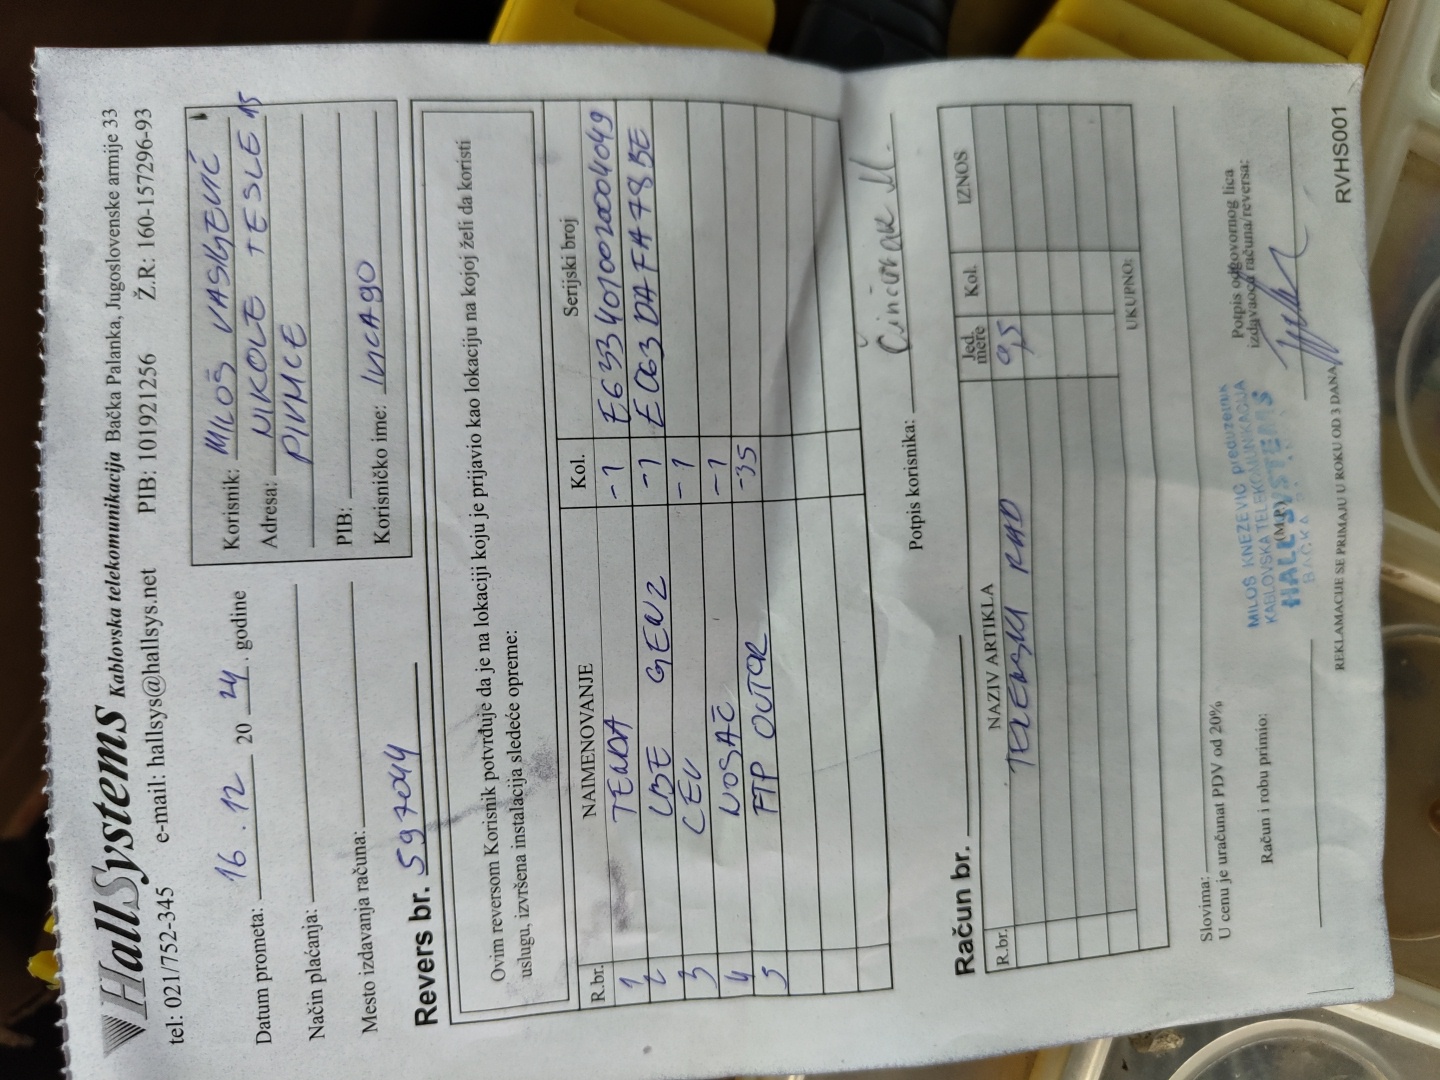 HallSystems Kablovska telekomunikacija Bačka Palanka, Jugoslovenske armije 33
tel: 021/752-345 e-mail: hallsys@hallsys.net PIB: 101921256 Ž.R: 160-157296-93
Datum prometa: 16.12 2024. godine
Način plaćanja:
Mesto izdavanja računa:
Korisnik: MILOŠ VASILJEVIĆ
Adresa: NIKOLE TESLE 15
PIVNICE
PIB:
Korisničko ime:
Revers br. 597044
Ovim reversom Korisnik potvrđuje da je na lokaciji koju je prijavio kao lokaciju na kojoj želi da koristi
uslugu, izvršena instalacija sledeće opreme:
R.br. NAIMENOVANJE Kol. Serijski broj
1 TENDA -1 E6334010020004049
2 LBE GEN2 -1 E063DAFA478BE
3 CEV -1
4 NOSAČ -1
5 FTP OUTDR -35
Potpis korisnika: Činčurak M.
Račun br.
R.br. NAZIV ARTIKLA Jed. mere Kol. IZNOS
TERENSKI RAD 0,5
UKUPNO:
Slovima:
U cenu je uračunat PDV od 20%
Račun i robu primio:
(M.P.)
Potpis odgovornog lica
izdavaoca računa/reversa:
MILOŠ KNEŽEVIĆ preduzetnik
KABLOVSKA TELEKOMUNIKACIJA
HALL SYSTEMS
BAČKA
REKLAMACIJE SE PRIMAJU U ROKU OD 3 DANA
RVHS001